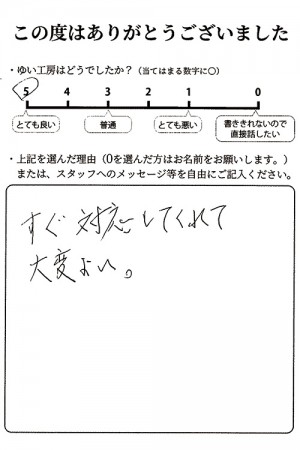 この度はありがとうございました
・ゆい工房はどうでしたか？（当てはまる数字に○）
5 4 3 2 1 0
とても良い 普通 とても悪い 書ききれないので直接話したい
・上記を選んだ理由（0を選んだ方はお名前をお願いします。）
または、スタッフへのメッセージ等を自由にご記入ください。
すぐ対応してくれて
大変よい。